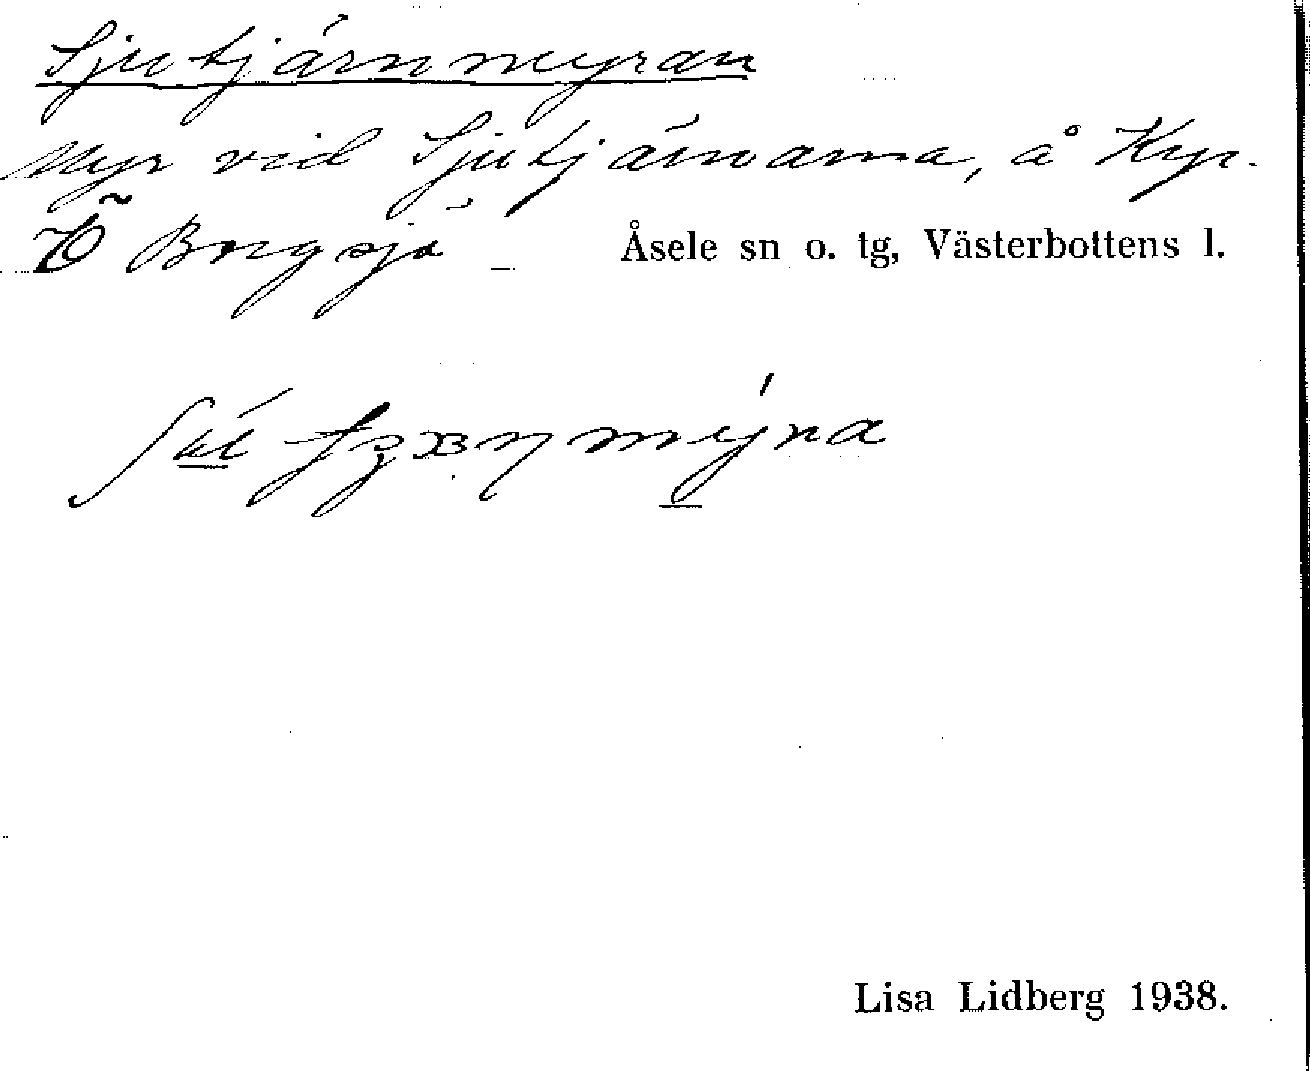 Sjutjärnmyran
Myr vid Sjutjärnarna, å Kyr.
Borgsjö Åsele sn o. tg, Västerbottens l.
Lisa Lidberg 1938.